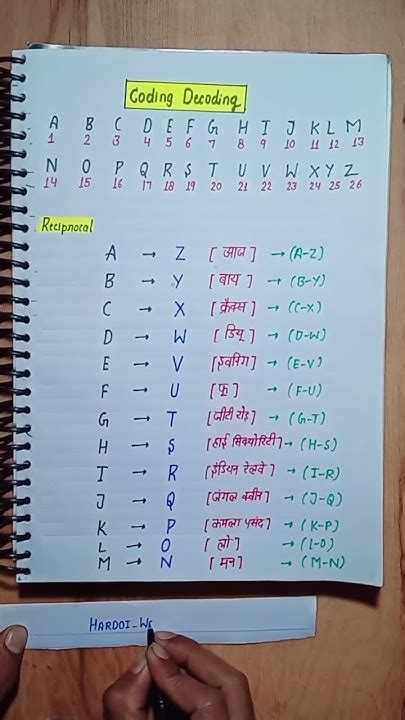 Coding Decoding
A B C D E F G H I J K L M
1 2 3 4 5 6 7 8 9 10 11 12 13
N O P Q R S T U V W X Y Z
14 15 16 17 18 19 20 21 22 23 24 25 26
Reciprocal
A → Z [आज] → (A-Z)
B → Y [बाय] → (B-Y)
C → X [क्रैक्स] → (C-X)
D → W [डियू] → (D-W)
E → V [इवनिंग] → (E-V)
F → U [फू] → (F-U)
G → T [जीटी रोड] → (G-T)
H → S [हाई सिक्योरिटी] → (H-S)
I → R [इंडियन रेलवे] → (I-R)
J → Q [जंगल क्वीन] → (J-Q)
K → P [कमला पसंद] → (K-P)
L → O [लो] → (L-O)
M → N [मन] → (M-N)
HARDOI-